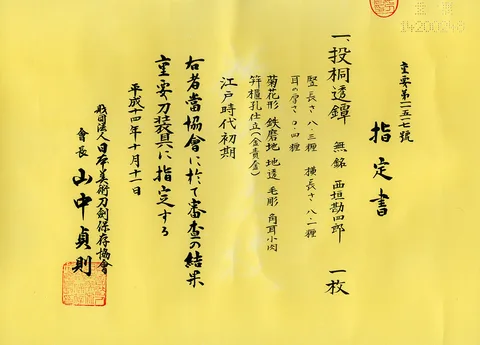 重要第一二五七號
指定書
一、投桐透鐔 無銘 西垣勘四郎 一枚
竪長さ八・三糎 横長さ八・二糎
耳の厚さ〇・四糎
菊花形 鉄磨地 地透 毛彫 角耳小肉
笄櫃孔仕立(金責金)
江戸時代初期
右者當協會に於て審査の結果
重要刀装具に指定する
平成十四年十月十一日
財団法人日本美術刀剣保存協會
會長 山中貞則
14200248